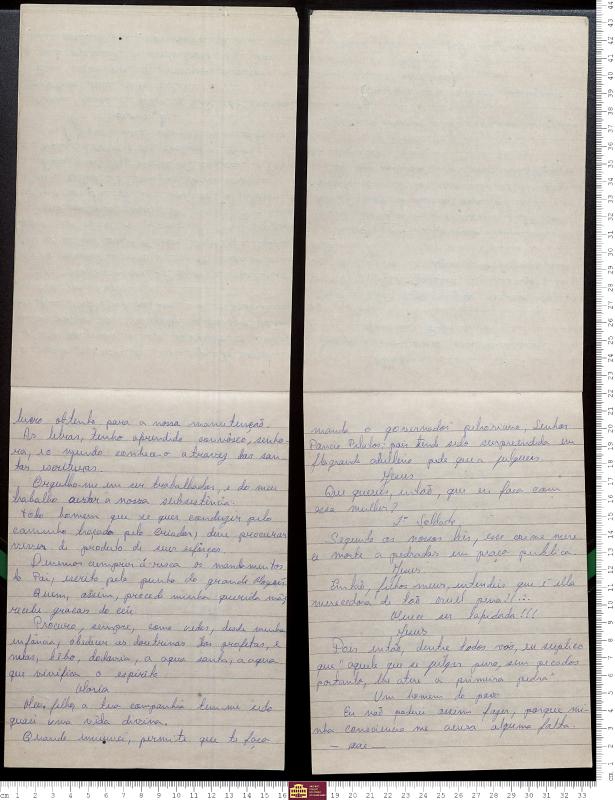 lucro obtenho para a nossa manutenção.
As letras, tenho aprendido convosco, senho-
ra, e o mundo conhece-o atravez das san-
tas escrituras.
Orgulho-me em ser trabalhador, e do meu
trabalho a nossa subsistencia.
Todo homem que se quer conduzir pelo
caminho traçado pelo Criador, deve procurar
viver do produto de seus esforços.
Devemos cumprir á risca os mandamentos
do Pai, escrito pelo punho do grande
Quem, assim, procede minha querida mãe,
recebe graças do céu.
Procuro, sempre, como vedes, desde minha
infância, obedecer as doutrinas dos profetas, e
nelas, bebo, a agua santa, a agua
que vivifica o espirito
Maria
Meu filho, a tua companhia tem-me sido
quasi uma vida divina.
Quando permite que te faco
manda o governador petroriano, Senhor
Poncio Pilatos; pois tendo sido surpreendida em
flagrante adulterio pede que a julgueis.
Jesus
Que quereis, então, que eu faca com
essa mulher?
1º Soldado
Segundo as nossas leis, esse crime mere
ce morte a pedradas em praça publica.
Jesus
Então, filhos meus, entendeis que é ella
merecedora de tão cruel pena?!...
Merece ser lapidada!!!
Jesus
Pois então, dentre todos vós, eu suplico
que "aquele que se julgar puro, sem pecados
portanto, lhe atire a primeira pedra"
Um homem do povo
Eu não poderei assim fazer, porque mi-
nha consciencia me acusa alguma falta.
— sai —